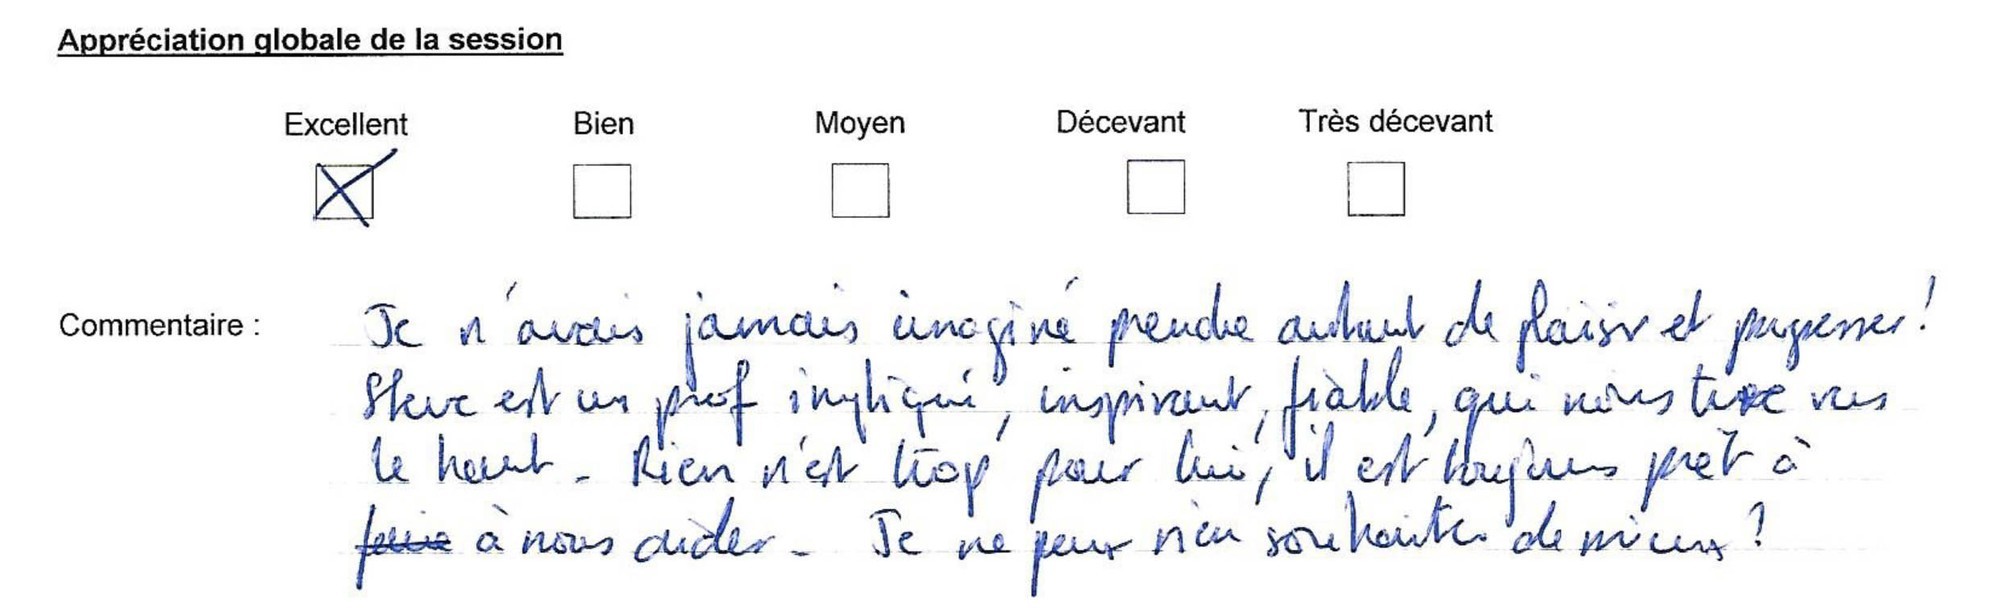 Appréciation globale de la session
Excellent Bien Moyen Décevant Très décevant
Commentaire : Je n'avais jamais imaginé prendre autant de plaisir et progresser !
Steve est un prof impliqué, inspirant, fiable, qui nous tire vers
le haut - Rien n'est trop pour lui, il est toujours prêt à
faire à nous aider - Je ne peux rien souhaiter de mieux !